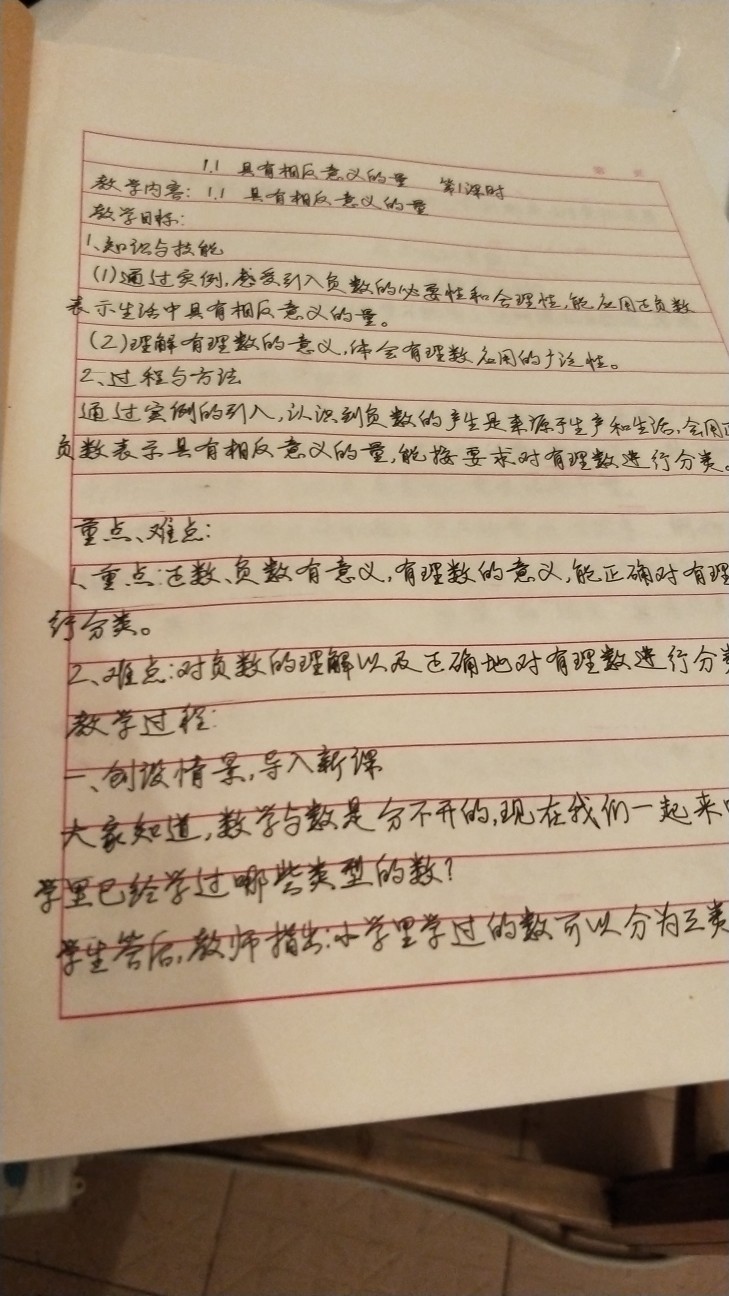 1.1 具有相反意义的量 第1课时
教学内容: 1.1 具有相反意义的量
教学目标:
1、知识与技能
(1)通过实例,感受引入负数的必要性和合理性,能应用正负数
表示生活中具有相反意义的量。
(2)理解有理数的意义,体会有理数应用的广泛性。
2、过程与方法
通过实例的引入,认识到负数的产生是来源于生产和生活,会用正
负数表示具有相反意义的量,能按要求对有理数进行分类。
重点、难点:
1、重点:正数、负数有意义,有理数的意义,能正确对有理
行分类。
2、难点:对负数的理解以及正确地对有理数进行分类
教学过程:
一、创设情景,导入新课
大家知道,数学与数是分不开的,现在我们一起来
学里已经学过哪些类型的数?
学生答后,教师指出:小学里学过的数可以分为三类